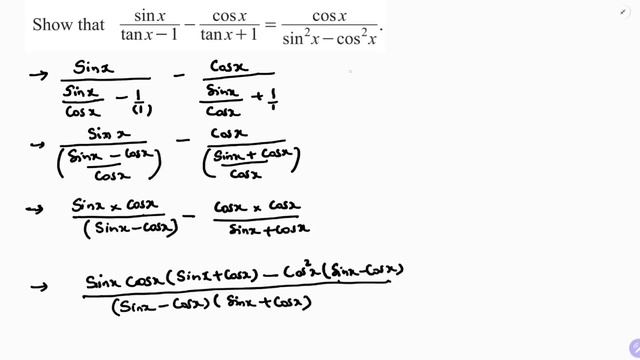 Show that sin x / (tan x − 1) − cos x / (tan x + 1) = cos x / (sin²x − cos²x).
→ Sinx / (Sinx/Cosx − 1/1 (1)) − Cosx / (Sinx/Cosx + 1/1)
→ Sinx / ((Sinx − Cosx)/Cosx) − Cosx / ((Sinx + Cosx)/Cosx)
→ Sinx × Cosx / (Sinx − Cosx) − Cosx × Cosx / Sinx + Cosx
→ Sinx Cosx (Sinx + Cosx) − Cos²x (Sinx − Cosx) / (Sinx − Cosx) (Sinx + Cosx)